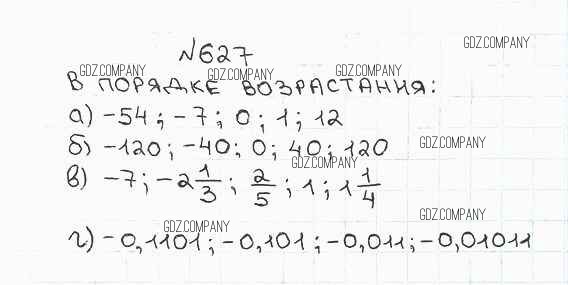 №627
GDZ.COMPANY
GDZ.COMPANY GDZ.COMPANY GDZ.COMPANY
В ПОРЯДКЕ ВОЗРАСТАНИЯ:
а) -54; -7; 0; 1; 12
б) -120; -40; 0; 40; 120
GDZ.COMPANY
GDZ.COMPANY
в) -7; -2 1/3; 2/5; 1; 1 1/4
GDZ.COMPANY
GDZ.COMPANY
г) -0,1101; -0,101; -0,011; -0,01011